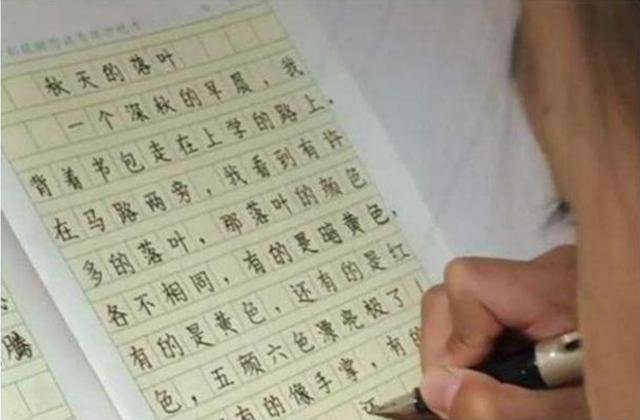 秋天的落叶
一个深秋的早晨，我
背着书包走在上学的路上。
在马路两旁，我看到有许
多的落叶，那落叶的颜色
各不相同，有的是暗黄色，
有的是黄色，还有的是红
色，五颜六色漂亮极了！
有的像手掌，有的
还
腾